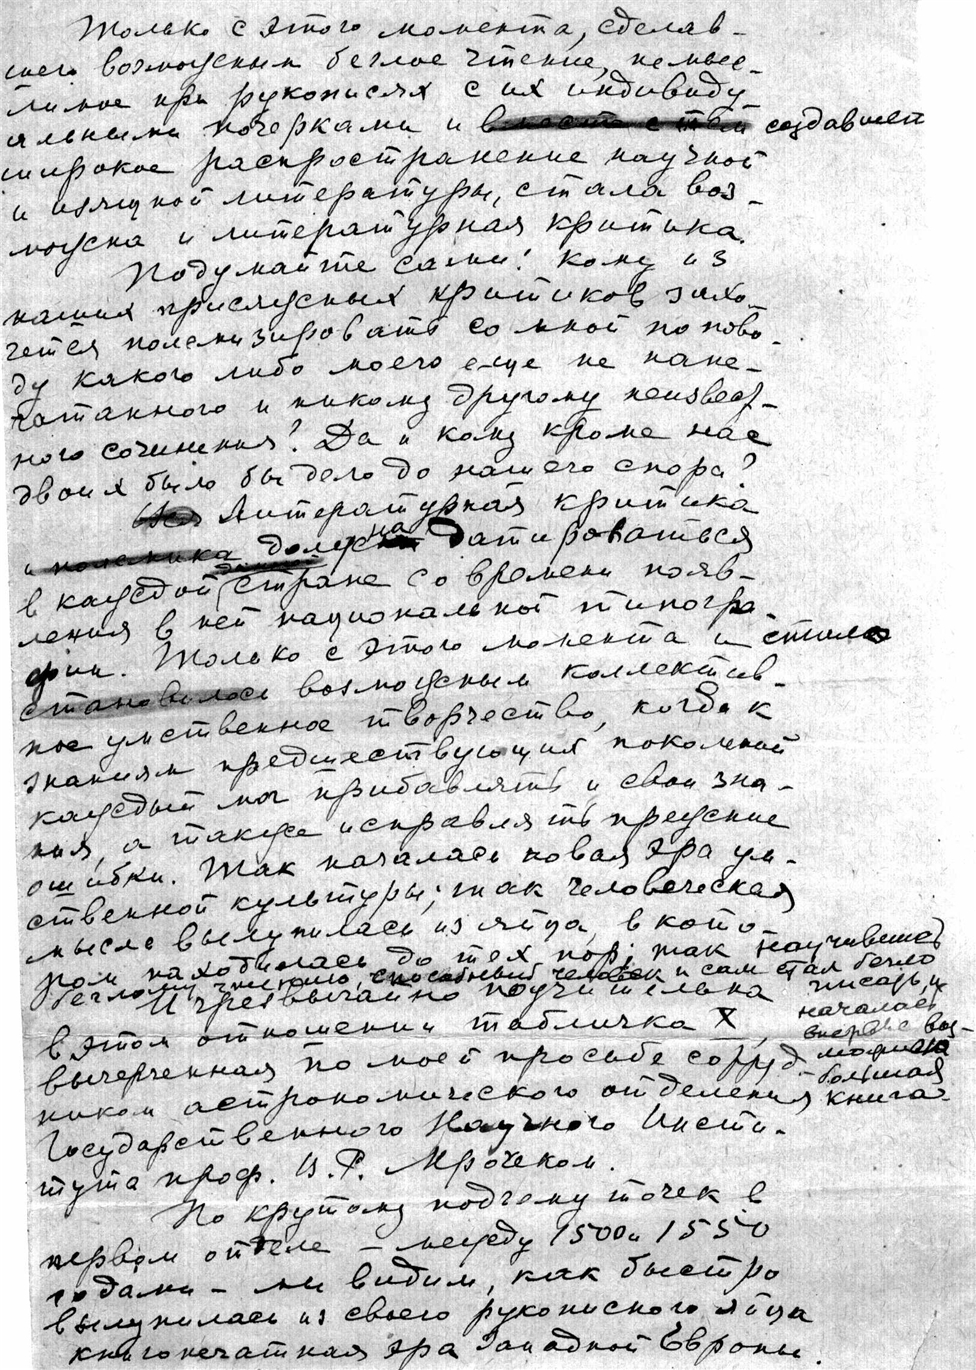 Только с этого момента, сделав-
шего возможным беглое чтение, немыс-
лимое при рукописях с их индивиду
альными почерками и вместе с тем создавшего
широкое распространение научной
и изящной литературы, стала воз-
можна и литературная критика.
Подумайте сами! Кому из
наших присяжных критиков захо-
чется полемизировать со мной по пово-
ду какого либо моего еще не напе-
чатанного и никому другому неизвест-
ного сочинения? Да и кому кроме нас
двоих было бы дело до нашего спора?
Литературная критика
и полемика должна датироваться
в каждой данной стране со времени появ-
ления в ней национальной типогра-
фии. Только с этого момента и стало
становилось возможным коллектив-
ное умственное творчество, когда к
знаниям предшествующих поколений
каждый мог прибавлять и свои зна-
ния, а также исправлять прежние
ошибки. Так началась новая эра ум-
ственной культуры; так человеческая
мысль вылупилась из яйца, в кото-
ром находилась до тех пор; так научившись
беглому чтению, способный человек и сам стал бегло
писать, и
началась
впервые воз-
можна
большая
книга.
И чрезвычайно поучительна
в этом отношении табличка X,
вычерченная по моей просьбе сотруд-
ником астрономического отделения
Государственного Научного Инсти-
тута проф. В. Р. Мрочеком.
По крутому подъему точек в
первом отделе – между 1500 и 1550
годами – мы видим, как быстро
вылупилась из своего рукописного яйца
книгопечатная эра Западной Европы.